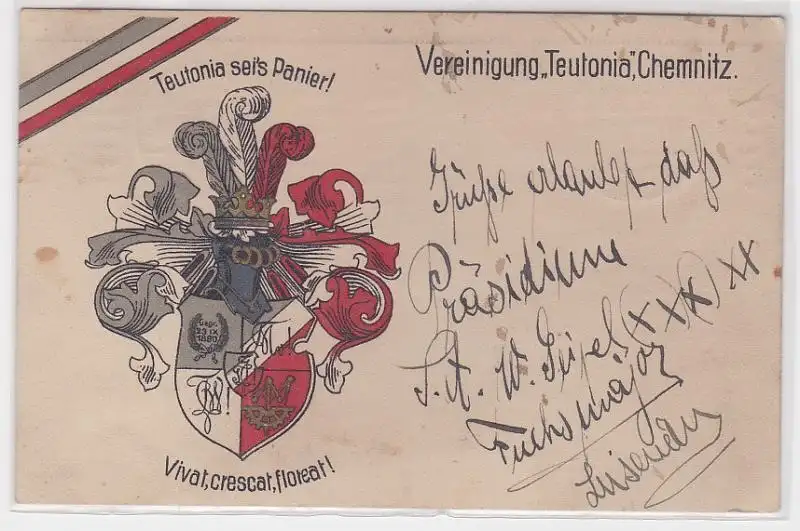 Teutonia sei's Panier!
Vereinigung „Teutonia", Chemnitz.
Grüße erlaubt daß
Präsidium
W. Geipel (x xx) xx
Fuchsmajor
Gegr.
23 IX
1880
Vivat, crescat, floreat!